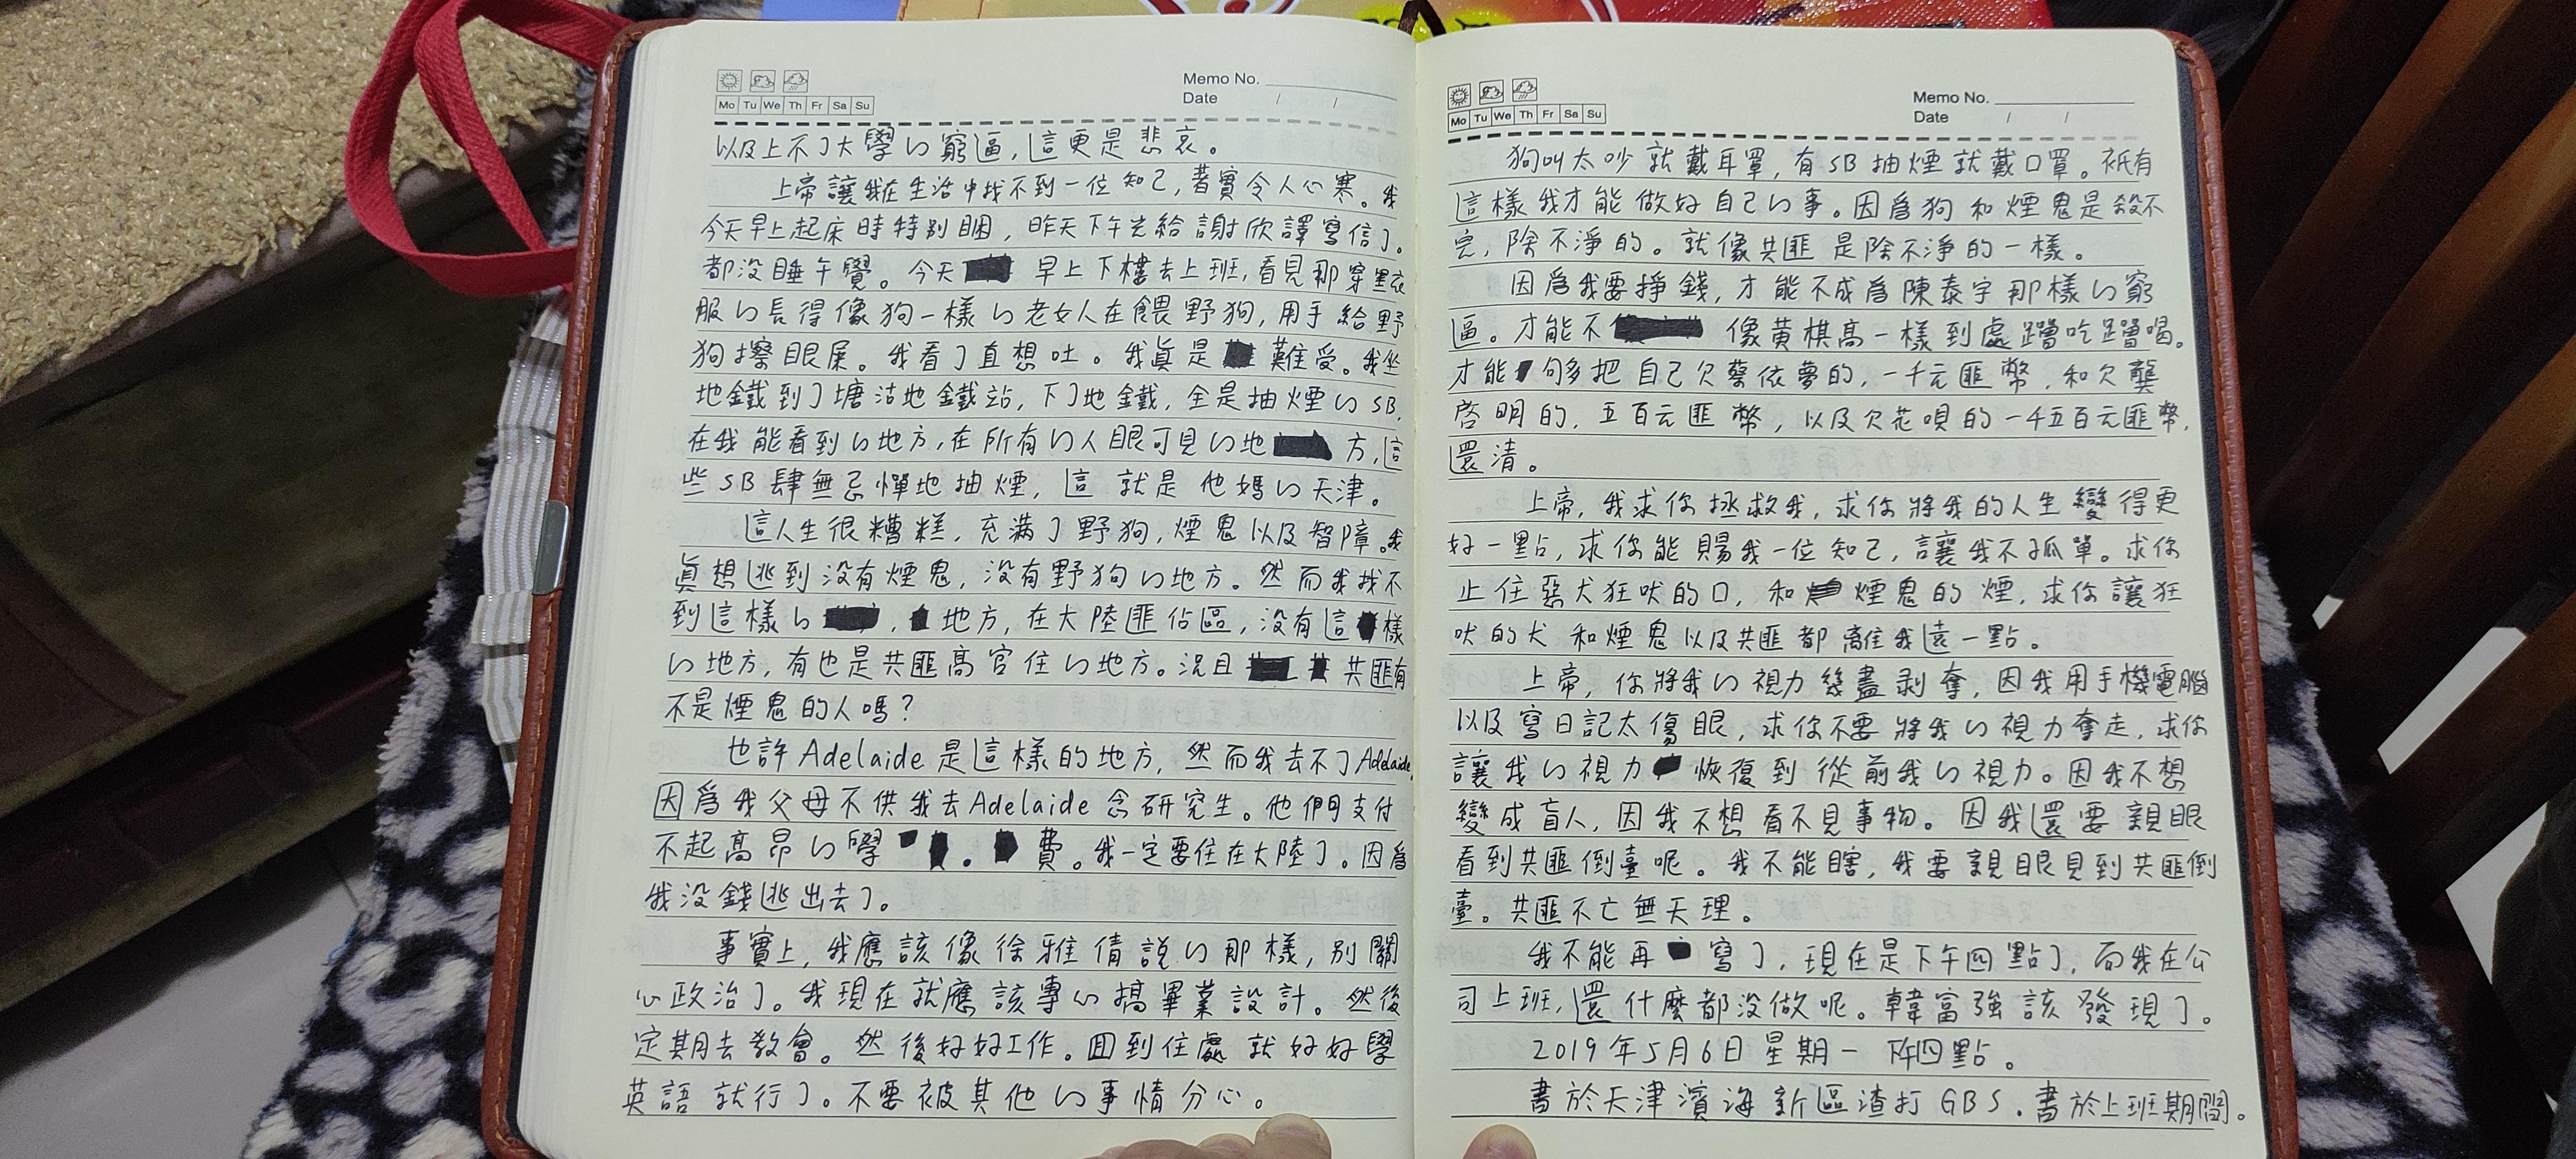 Memo No.
Date / /
Mo Tu We Th Fr Sa Su
以及上不了大學的窮逼，這更是悲哀。
上帝讓我在生活中找不到一位知己，著實令人心寒。我
今天早上起床時特別睏，昨天下午光給謝欣譯寫信了。
都没睡午覺。今天 早上下樓去上班，看見那穿黑衣
服的長得像狗一樣的老女人在餵野狗，用手給野
狗擦眼屎。我看了直想吐。我眞是 難受。我坐
地鐵到了塘沽地鐵站，下了地鐵，全是抽煙的SB，
在我能看到的地方，在所有的人眼可見的地 方，這
些SB肆無忌憚地抽煙，這就是他媽的天津。
這人生很糟糕，充滿了野狗，煙鬼以及智障。我
眞想逃到没有煙鬼，没有野狗的地方。然而我找不
到這樣的 ， 地方，在大陸匪佔區，没有這 樣
的地方，有也是共匪高官住的地方。況且 共匪有
不是煙鬼的人嗎？
也許Adelaide是這樣的地方，然而我去不了Adelaide，
因爲我父母不供我去Adelaide念研究生。他們支付
不起高昂的學 。 費。我一定要住在大陸了。因爲
我没錢逃出去了。
事實上，我應該像徐雅倩説的那樣，別關
心政治了。我現在就應該專心搞畢業設計。然後
定期去教會。然後好好工作。回到住處就好好學
英語就行了。不要被其他的事情分心。
Memo No.
Date / /
Mo Tu We Th Fr Sa Su
狗叫太吵就戴耳罩，有SB抽煙就戴口罩。衹有
這樣我才能做好自己的事。因爲狗和煙鬼是殺不
完，除不淨的。就像共匪是除不淨的一樣。
因爲我要掙錢，才能不成爲陳泰宇那樣的窮
逼。才能不 像黄棋高一樣到處蹭吃蹭喝。
才能 句多把自己欠蔡依夢的，一千元匪幣，和欠龔
啓明的，五百元匪幣，以及欠花唄的一千五百元匪幣，
還清。
上帝，我求你拯救我，求你將我的人生變得更
好一點，求你能賜我一位知己，讓我不孤單。求你
止住惡犬狂吠的口，和 煙鬼的煙，求你讓狂
吠的犬和煙鬼以及共匪都離我遠一點。
上帝，你將我的視力幾盡剥奪，因我用手機電腦
以及寫日記太傷眼，求你不要將我的視力奪走，求你
讓我的視力 恢復到從前我的視力。因我不想
變成盲人，因我不想看不見事物。因我還要親眼
看到共匪倒臺呢。我不能瞎，我要親眼見到共匪倒
臺。共匪不亡無天理。
我不能再 寫了，現在是下午四點了，而我在公
司上班，還什麼都没做呢。韓富強該發現了。
2019年5月6日星期一下午四點。
書於天津濱海新區渣打GBS．書於上班期間。